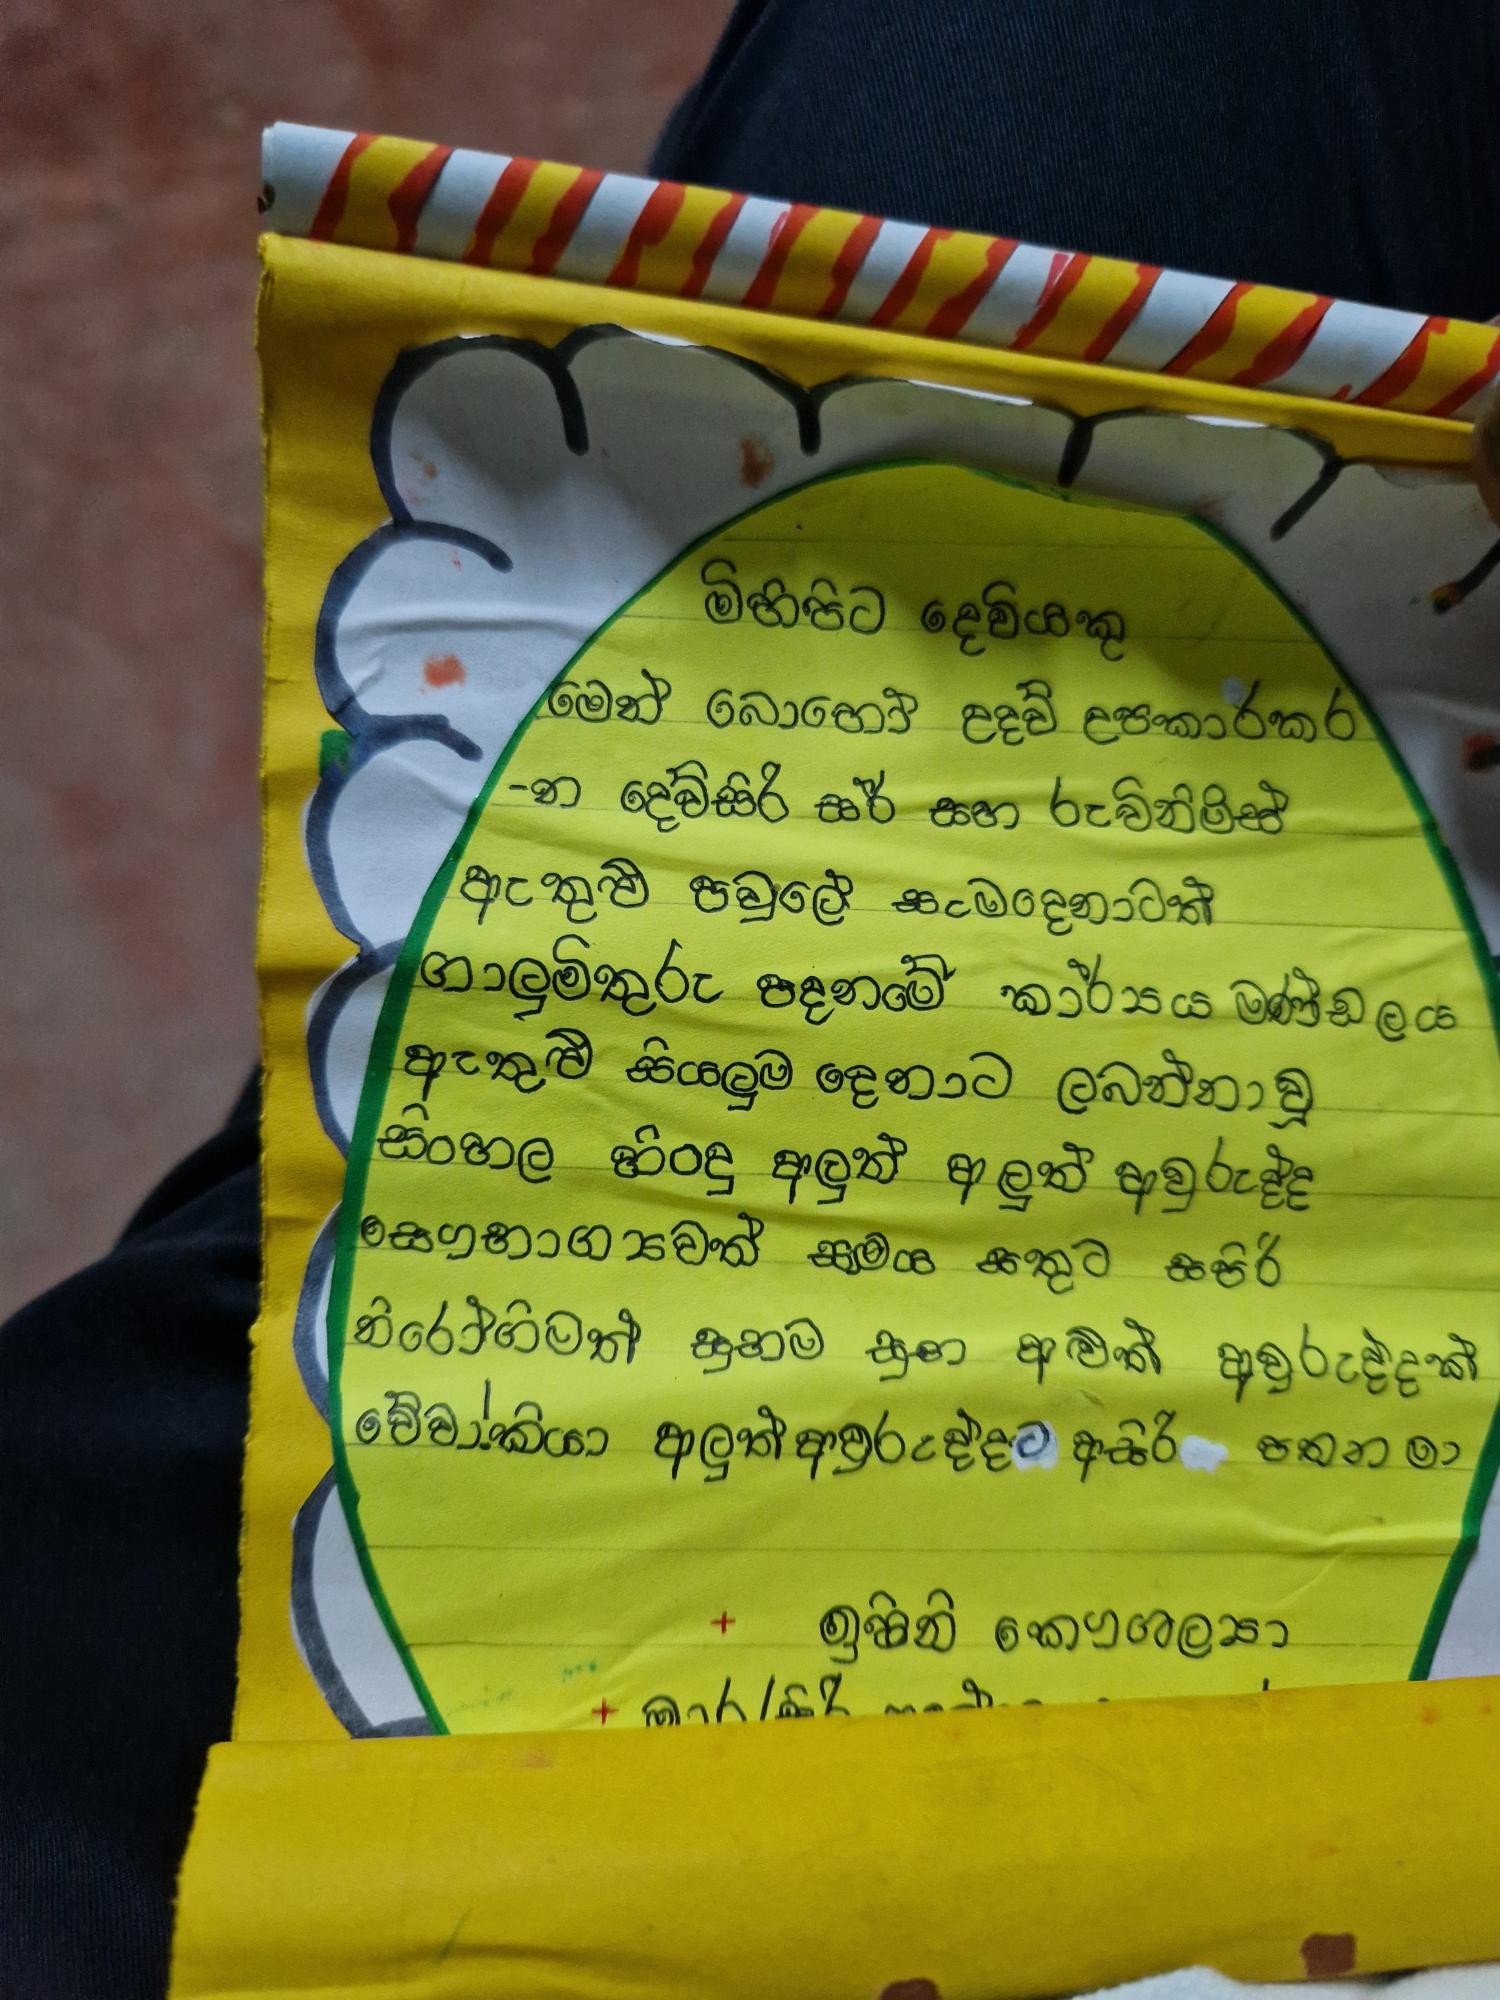 මිහිපිට දෙවියකු
මෙන් බොහෝ උදව් උපකාර්කර
-න දෙව්සිරි සර් සහ රුවිනිමිස්
ඇතුළු පවුලේ සැමදෙනාටත්
ගාලුමිතුරු පදනමේ කාර්ය්‍ය මණ්ඩලය
ඇතුළු සියලුම දෙනාට ලබන්නාවූ
සිංහල හින්දු අලුත් අලුත් අවුරුද්ද
සෞභාග්‍යවත් සමය සතුට සපිරි
නිරෝගිමත් සුභම සුභ අළුත් අවුරුද්දක්
වේවා!කියා අලුත්අවුරුද්දට අසිරි පතනමා
+ ඉෂිනි කෞශල්‍යා